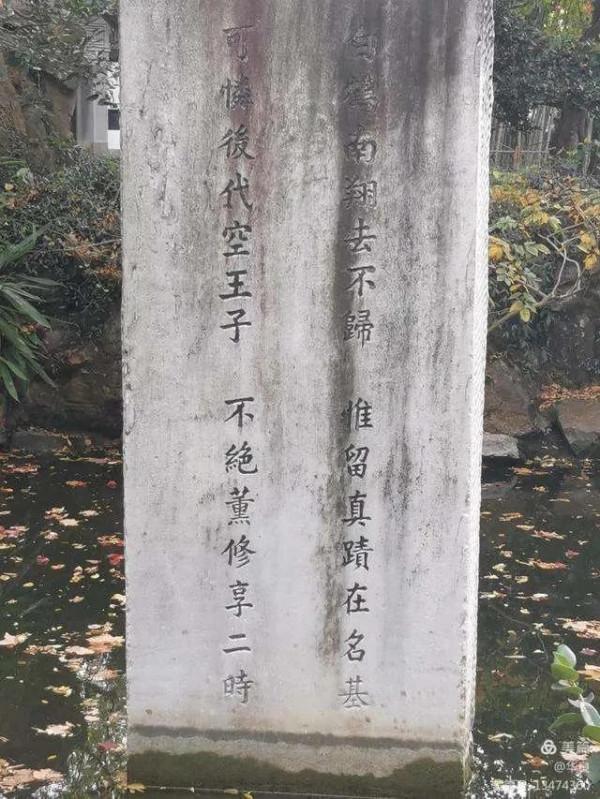 白鶴南翔去不歸 惟留真蹟在名基
可憐後代空王子 不絕薰修享二時
美篇
@华良